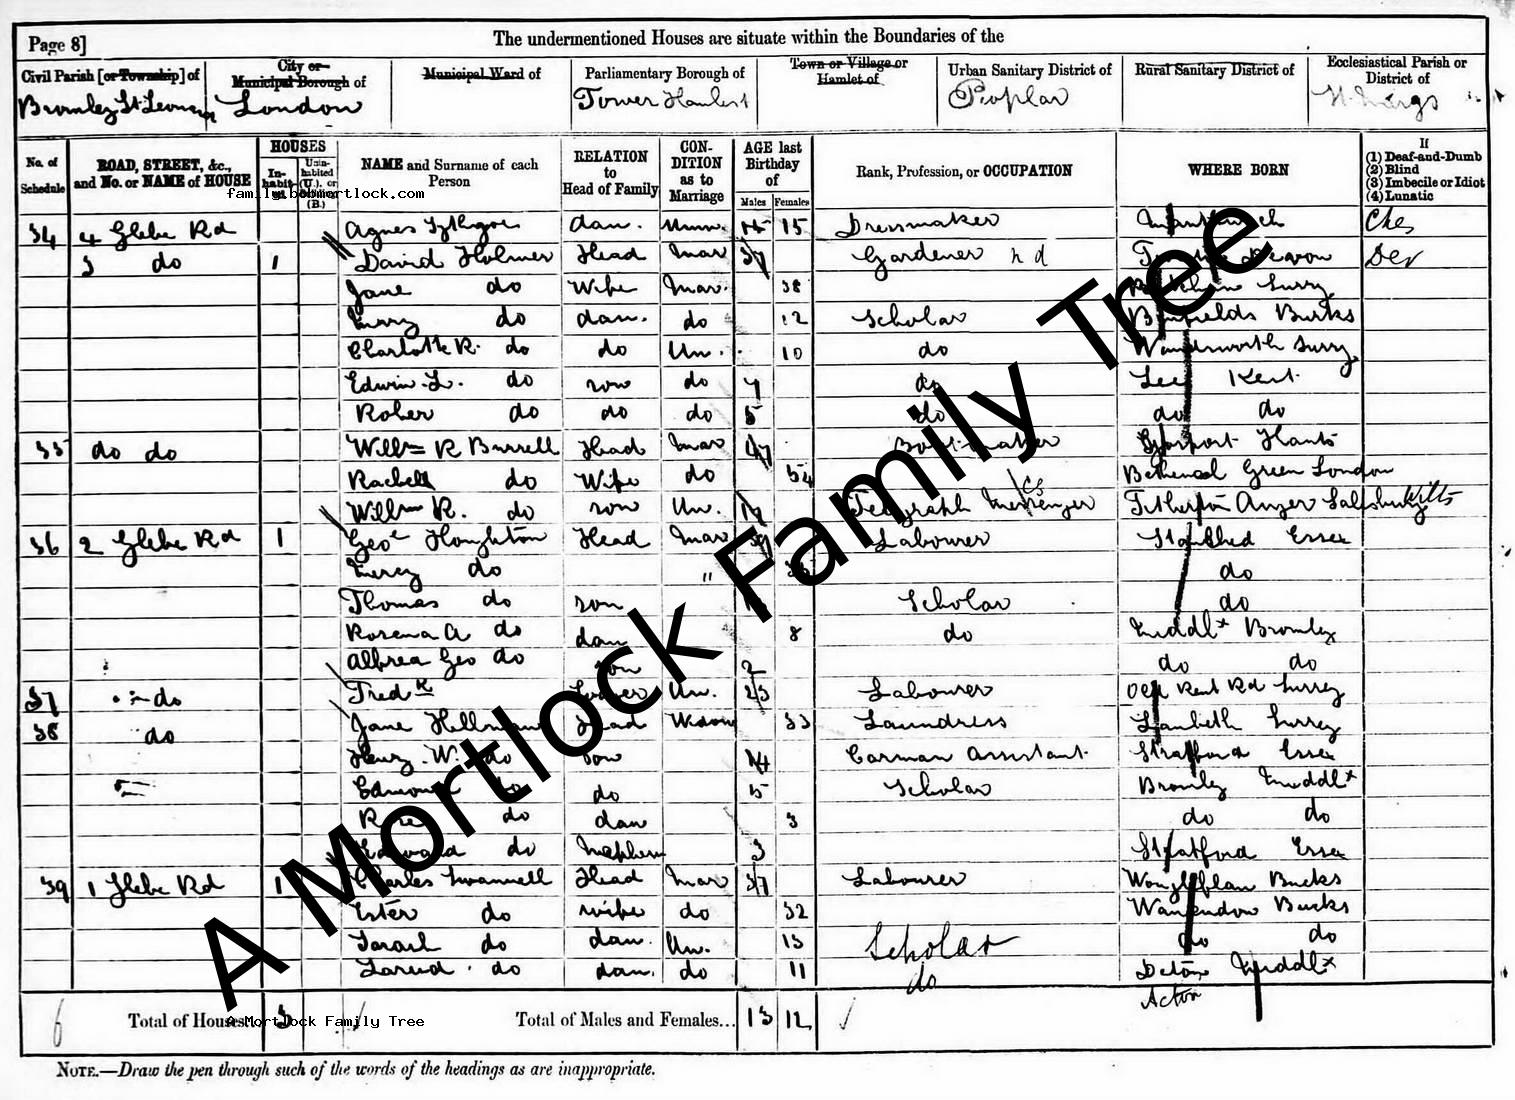 Page 8] The undermentioned Houses are situate within the Boundaries of the
Civil Parish [or Township] of City or Municipal Borough of Municipal Ward of Parliamentary Borough of Town or Village or Hamlet of Urban Sanitary District of Rural Sanitary District of Ecclesiastical Parish or District of
Bromley St Leonard London Tower Hamlets Poplar
No. of Schedule ROAD, STREET, &c., and No. or NAME of HOUSE HOUSES Inhabited Uninhabited (U.), or (B.) NAME and Surname of each Person RELATION to Head of Family CONDITION as to Marriage AGE last Birthday of Males Females Rank, Profession, or OCCUPATION WHERE BORN If (1) Deaf-and-Dumb (2) Blind (3) Imbecile or Idiot (4) Lunatic
family.bobmortlock.com
34 4 Glebe Rd Agnes daur. Unm. 15 Dressmaker Ches
3 do 1 David Holmer Head Mar 37 Gardener n d Devon Dev
Jane do Wife Mar. 38 Surry
do daur. do 12 Scholar Burks
Charlotte R. do do Un. 10 do Wandsworth Surry
Edwin L. do son do 7 do Lee Kent
Rober do do do 5 do do do
35 do do Willm R Burrell Head Mar 47 Bootmaker Gosport Hants
Rachell do Wife do 54 Bethenal Green London
Willm R. do son Un. Telegraph Messenger CS Salisbury Wilts
36 2 Glebe Rd 1 Geo Houghton Head Mar 39 Labourer Stansted Essex
do " do
Thomas do son Scholar do
Rosena A do dau 8 do Middlx Bromley
Albrea Geo do son 2 do do
37 do Fredk Lodger Un. 23 Labourer Old Kent Rd Surrey
38 do Jane Hellman Head Widow 33 Laundress Lambeth Surrey
Henry. W. do son 14 Carman Assistant Stratford Essex
Edmond do do 5 Scholar Bromley Middlx
Rose do dau 3 do do
Edward do Nephew 3 Stratford Essex
39 1 Glebe Rd 1 Charles Swannell Head Mar 37 Labourer Bucks
Ester do wife do 32 Bucks
Sarah do daur. Un. 13 Scholar do do
do daur. do 11 do Middlx
Acton
Total of Houses... 3 Total of Males and Females... 13 12
A Mortlock Family Tree
NOTE.—Draw the pen through such of the words of the headings as are inappropriate.
A Mortlock Family Tree